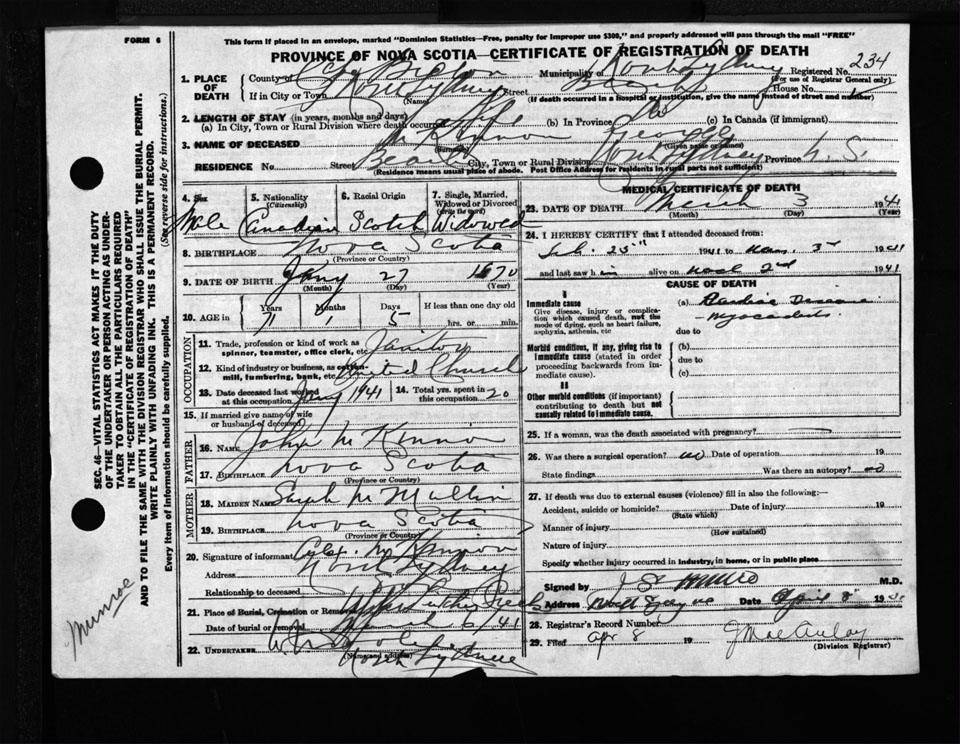 FORM 6
This form if placed in an envelope, marked "Dominion Statistics—Free, penalty for improper use $300," and properly addressed will pass through the mail "FREE"
PROVINCE OF NOVA SCOTIA—CERTIFICATE OF REGISTRATION OF DEATH
Registered No. 234
(For use of Registrar General only)
1. PLACE OF DEATH
County of Cape Breton Municipality of North Sydney
If in City or Town North Sydney Street Beacon House No.
(Name) (If death occurred in a hospital or institution, give the name instead of street and number)
2. LENGTH OF STAY (in years, months and days)
(a) In City, Town or Rural Division where death occurred Life (b) In Province (c) In Canada (if immigrant)
3. NAME OF DECEASED McKinnon George
(Surname) (Given name or names)
RESIDENCE No. Street Beacon City, Town or Rural Division North Sydney Province N. S.
(Residence means usual place of abode. Post Office Address for Residents in rural parts not sufficient)
4. Sex 5. Nationality (Citizenship) 6. Racial Origin 7. Single, Married, Widowed or Divorced (write the word)
Male Canadian Scotch Widowed
8. BIRTHPLACE Nova Scotia
(Province or Country)
9. DATE OF BIRTH Jany 27 1870
(Month) (Day) (Year)
10. AGE in Years Months Days If less than one day old
71 1 5 hrs. or min.
OCCUPATION
11. Trade, profession or kind of work as spinner, teamster, office clerk, etc Janitor
12. Kind of industry or business, as cotton-mill, lumbering, bank, etc United Church
13. Date deceased last worked at this occupation Jany 1941 14. Total yrs. spent in this occupation 20
15. If married give name of wife or husband of deceased
FATHER
16. NAME John McKinnon
17. BIRTHPLACE Nova Scotia
(Province or Country)
MOTHER
18. MAIDEN NAME Sarah McMullin
19. BIRTHPLACE Nova Scotia
(Province or Country)
20. Signature of informant Alex. McKinnon
Address North Sydney
Relationship to deceased Son
21. Place of Burial, Cremation or Removal Creek
Date of burial or removal March 6/41
22. UNDERTAKER
(Name and address)
North Sydney
MEDICAL CERTIFICATE OF DEATH
23. DATE OF DEATH March 3 1941
(Month) (Day) (Year)
24. I HEREBY CERTIFY that I attended deceased from
Feb. 25th 1941 to Mar. 3rd 1941
and last saw him alive on March 2nd 1941
CAUSE OF DEATH
I
Immediate cause
Give disease, injury or complication which caused death, not the mode of dying, such as heart failure, asphyxia, asthenia, etc
(a) Cardiac Disease
- Myocarditis
due to
Morbid conditions, if any, giving rise to immediate cause (stated in order proceeding backwards from immediate cause).
(b)
due to
(c)
II
Other morbid conditions (if important) contributing to death but not causally related to immediate cause.
25. If a woman, was the death associated with pregnancy?
26. Was there a surgical operation? no Date of operation 19
State findings Was there an autopsy? no
27. If death was due to external causes (violence) fill in also the following:—
Accident, suicide or homicide? Date of injury 19
(State which)
Manner of injury
(How sustained)
Nature of injury
Specify whether injury occurred in industry, in home, or in public place
Signed by Munro M.D.
Address North Sydney Date April 8 1941
28. Registrar's Record Number
29. Filed Apr 8 19 J MacAulay
(Division Registrar)
SEC. 46—VITAL STATISTICS ACT MAKES IT THE DUTY
OF THE UNDERTAKER OR PERSON ACTING AS UNDER-
TAKER TO OBTAIN ALL THE PARTICULARS REQUIRED
IN THE "CERTIFICATE OF REGISTRATION OF DEATH"
AND TO FILE THE SAME WITH THE DIVISION REGISTRAR WHO SHALL ISSUE THE BURIAL PERMIT.
WRITE PLAINLY WITH UNFADING INK. THIS IS A PERMANENT RECORD.
Every item of information should be carefully supplied. (See reverse side for instructions.)
Munroe